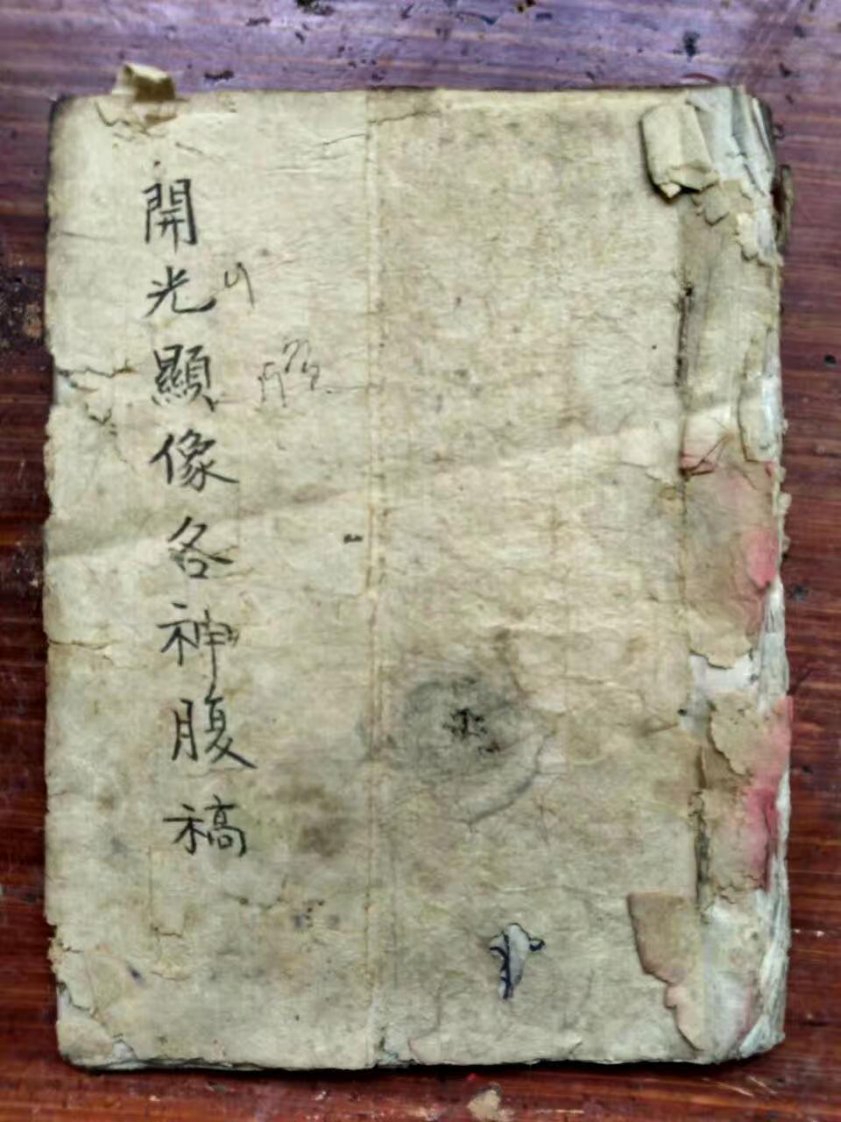 開光顯像各神腹稿